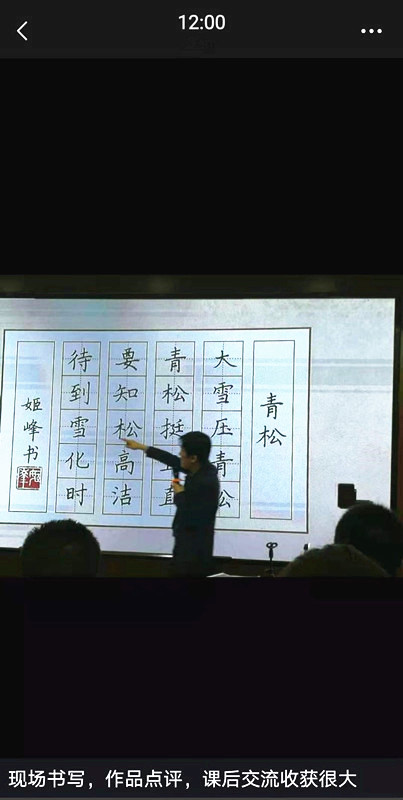 12:00
青松
大雪压青松
青松挺且直
要知松高洁
待到雪化时
姬峰书
现场书写，作品点评，课后交流收获很大